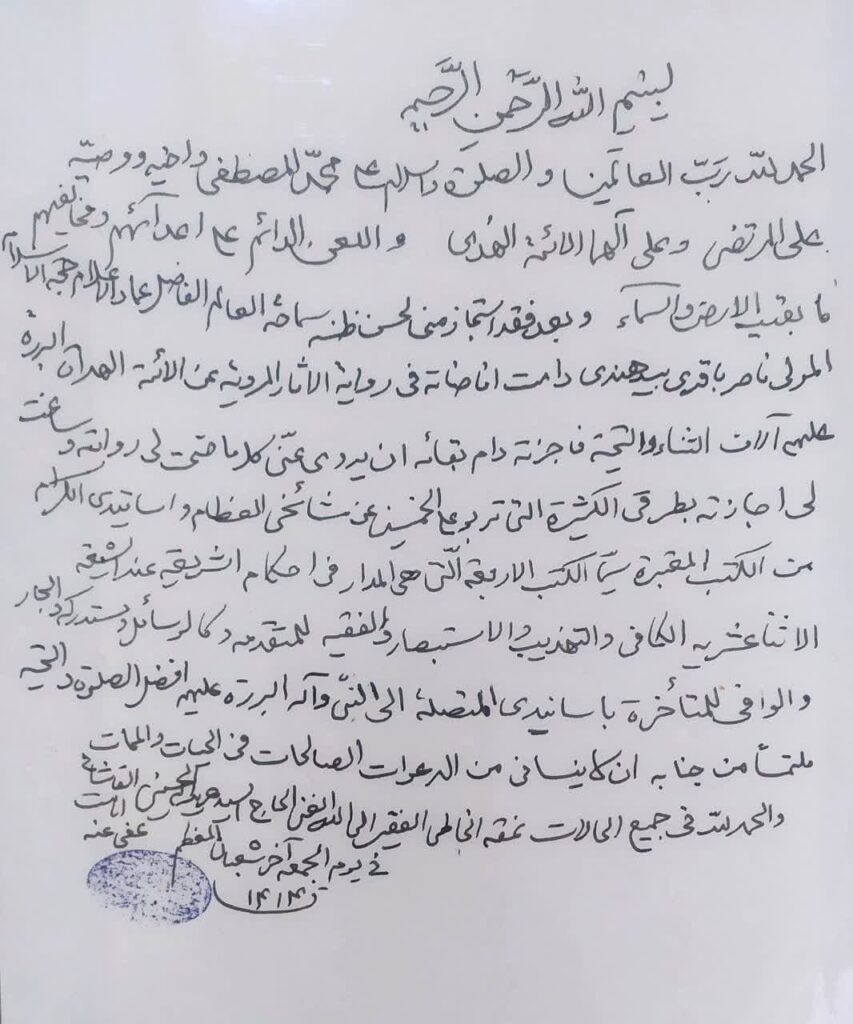 بِسْمِ اللهِ الرَّحْمنِ الرَّحِيمِ
الحمد للّه رَبّ العالَمين و الصلوة والسلام على محمّد المصطفى واخيه ووصيّه
على المرتضى وعلى آلهما الائمة الهُدى و اللعن الدائم على اعدائهم ومخالفيهم
ما بقيت الارض والسماء وبعد فقد استجاز منى لحسن ظنه سماحة العالم الفاضل عماد الاعلام حجة الاسلام
المولى ناصر باقرى بيدهندى دامت افاضاته فى رواية الآثار المروية عن الائمة الهداة البررة
عليهم آلاف الثناء والتحية فاجزته دام بقائه ان يروى عنّى كلما صحت لى روايته و ساغت
لى اجازته بطرقى الكثيرة التى تربو على الخمسين عن مشائخى العظام و اساتيذى الكرام
من الكتب المعتبرة سيّما الكتب الاربعة الّتى هى المدار فى احكام الشريعة عند الشيعة
الاثنا عشريه الكافى والتهذيب والاستبصار والفقيه للمتقدمه وكالوسائل ومستدركه والبحار
والوافى للمتأخرة باسانيدى المتصلة الى النبّى وآله البررة عليهم افضل الصلوة والتحية
ملتمساً من جنابه ان لا ينسانى من الدعوات الصالحات فى الحيات والممات
والحمد للّه فى جميع الحالات نمقه الخاطى الفقير الى الله الغنى الحاج السيد الحسينى
عفى عنه
فى يوم الجمعه آخر شعبان المعظم
١٤١٤ ق